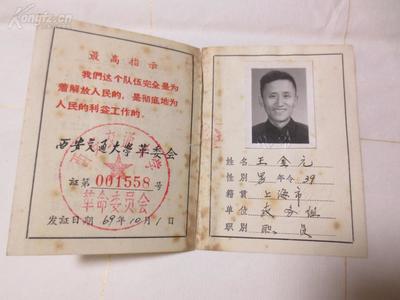 Kongfz.cn
最高指示
我們这个队伍完全是为
着解放人民的，是彻底地为
人民的利益工作的。
西安交通大学革委会
证第 001558 号
革命委员会
发证日期 69年10月1日
姓名 王金元
性别 男 年令 39
籍贯 上海市
单位 政务组
职别 职员